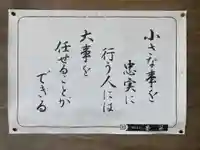 小さな事を
忠実に
行う人には
大事を
任せることが
できる